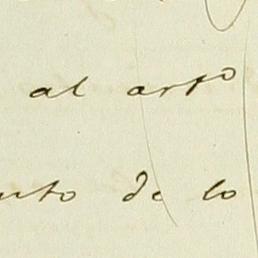 al arto
nto de lo